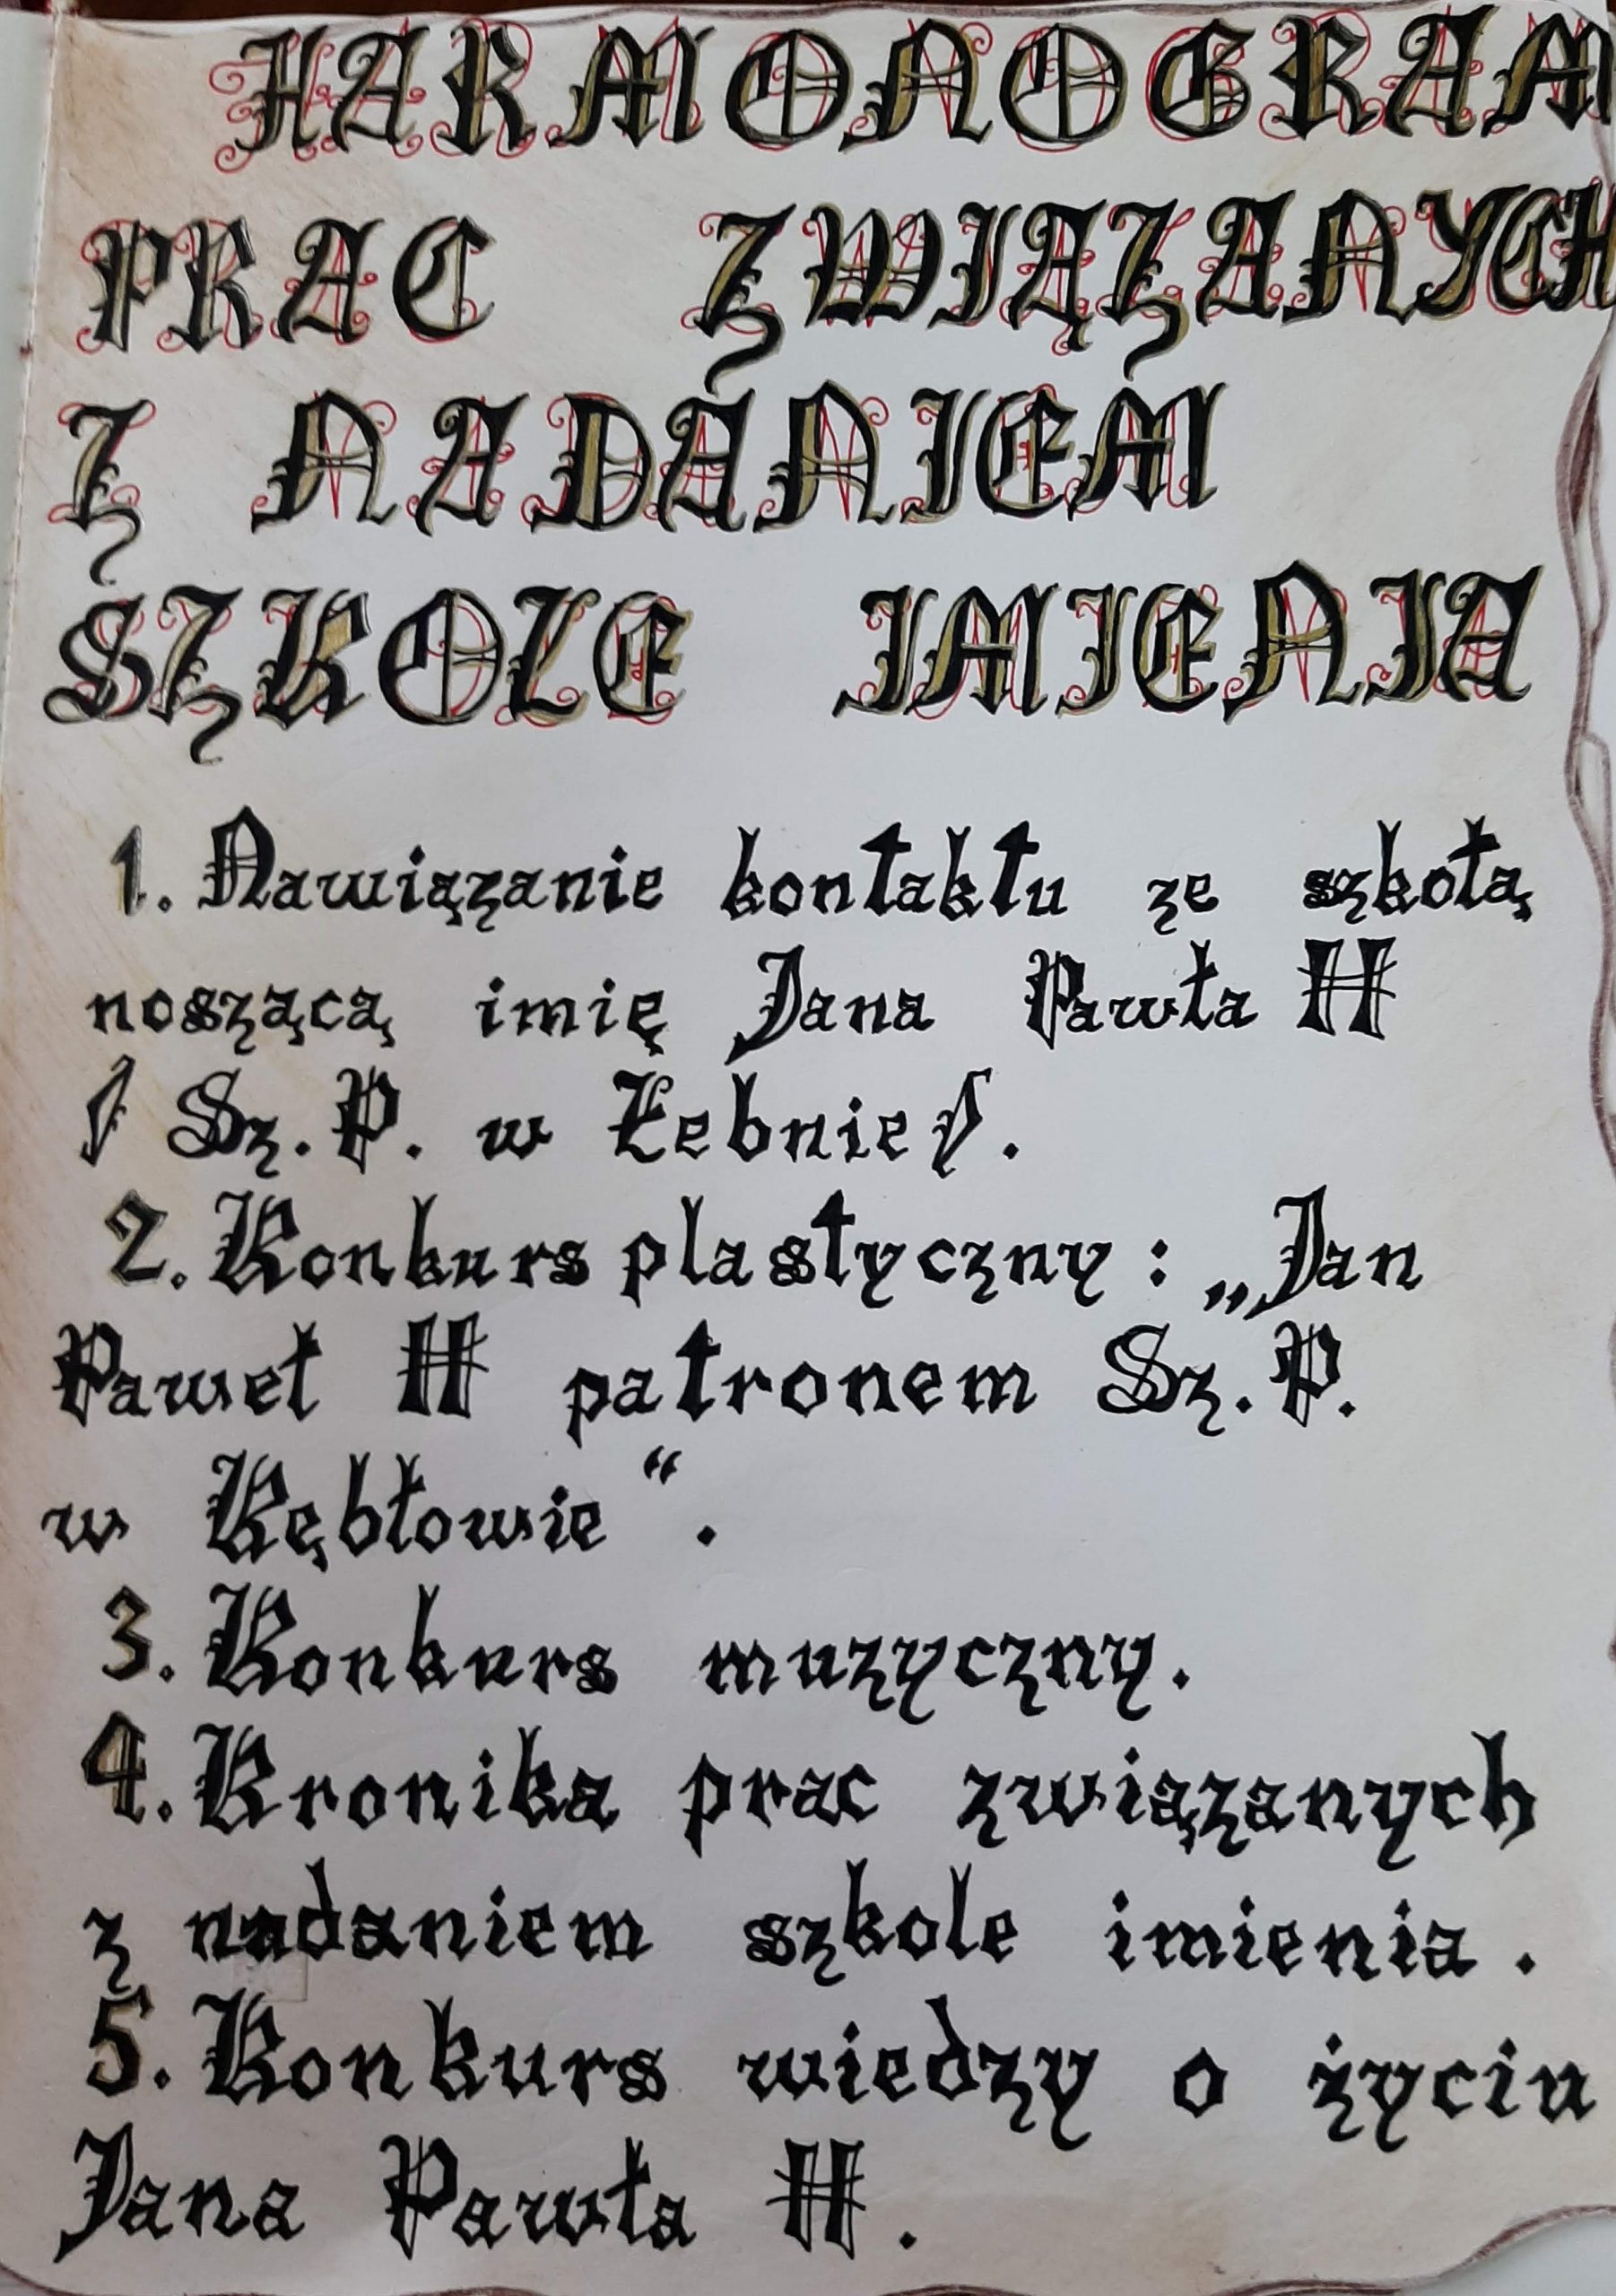 HARMONOGRAM
PRAC ZWIĄZANYCH
Z NADANIEM
SZKOLE IMIENIA
1. Nawiązanie kontaktu ze szkołą
noszącą imię Jana Pawła II
/ Sz. P. w Łebnie /.
2. Konkurs plastyczny : „Jan
Paweł II patronem Sz. P.
w Kębłowie“.
3. Konkurs muzyczny.
4. Kronika prac związanych
z nadaniem szkole imienia.
5. Konkurs wiedzy o życiu
Jana Pawła II.